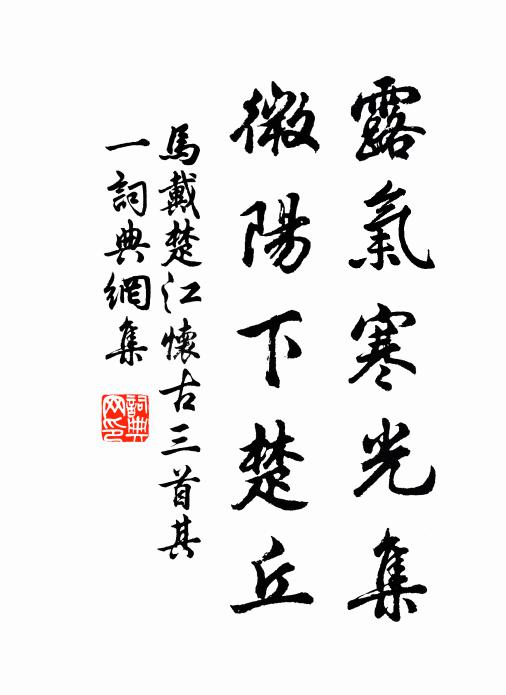 露氣寒光集
微陽下楚丘
馬戴楚江懷古三首其
一詞典網集
詞典
网印